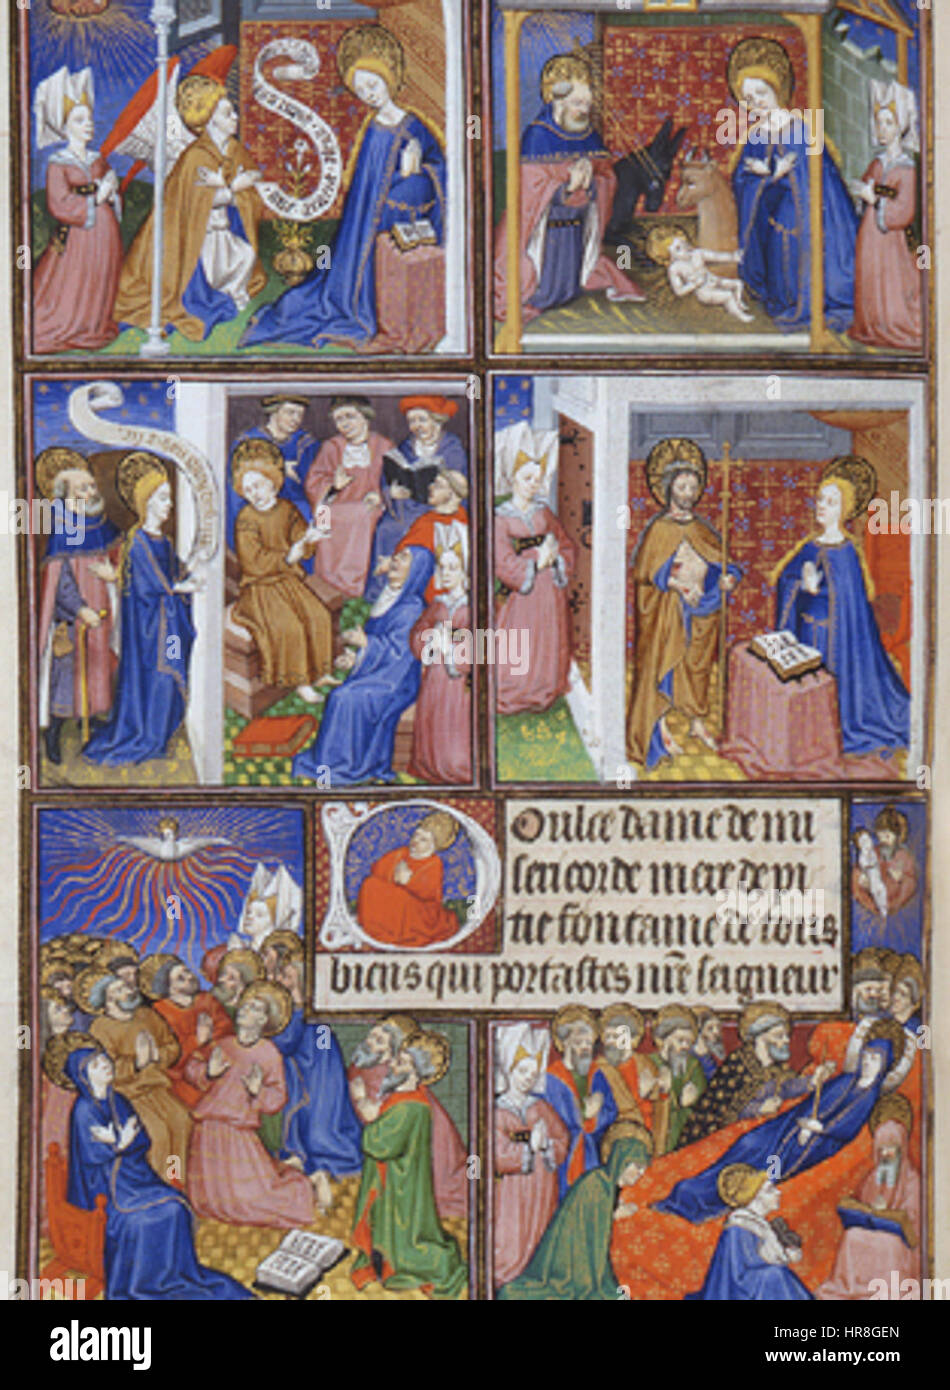 Doulce dame de mi
sericorde mere de pi
tie fontaine de tous
biens qui portastes nr̃e seigneur
alamy
Image ID: HR8GEN
www.alamy.com